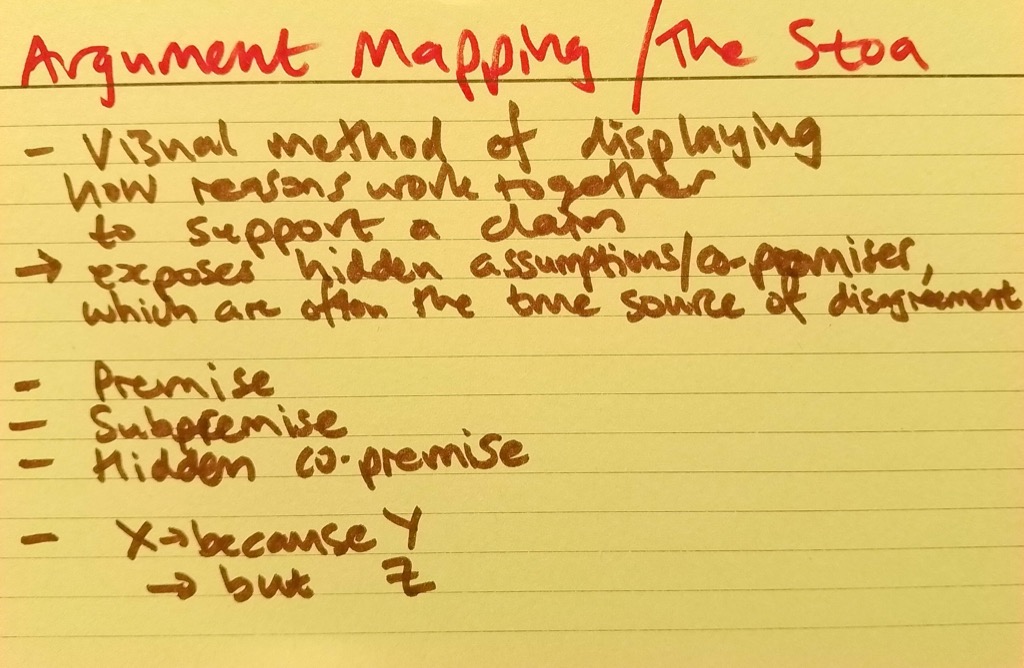 Argument Mapping / The Stoa
- Visual method of displaying
how reasons work together
to support a claim
→ exposes hidden assumptions/co-premises,
which are often the true source of disagreement
- Premise
- Subpremise
- Hidden co-premise
- X → because Y
→ but Z